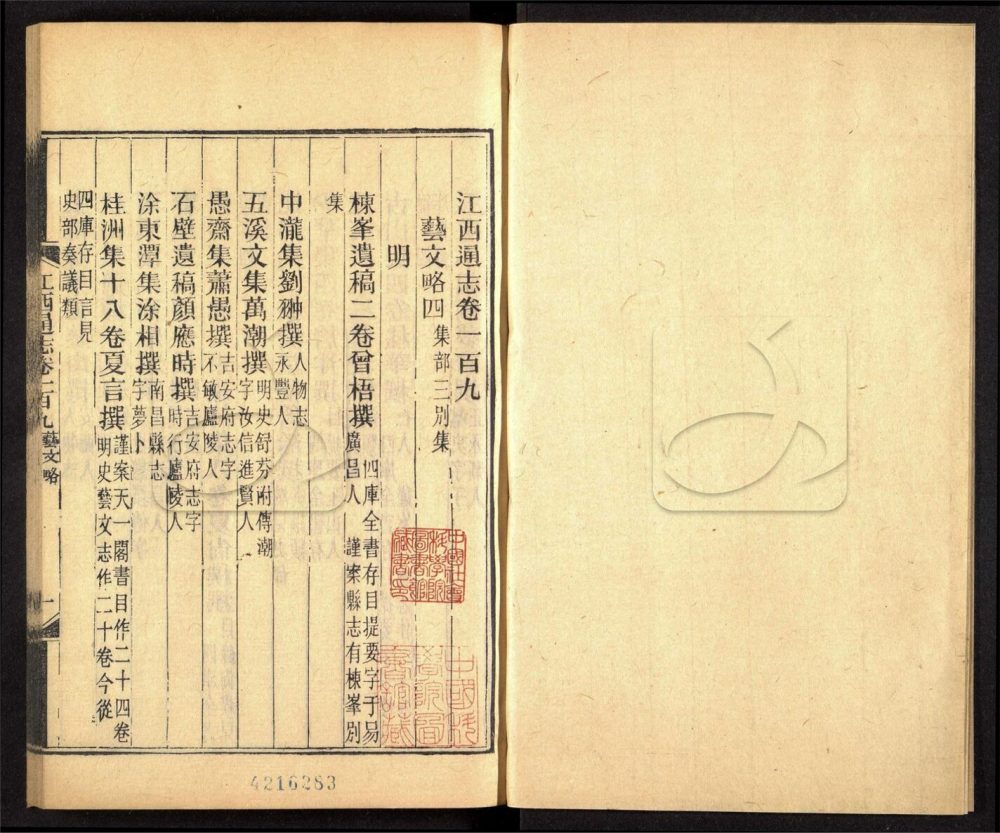 江西通志卷一百九
藝文略四 集部三別集
明
棟峯遺稿二卷曾梧撰 四庫全書存目提要字于易廣昌人 謹案縣志有棟峯別
集
中瀧集劉翀撰 人物志永豐人
五溪文集萬潮撰 明史舒芬附傳潮字汝信進賢人
愚齋集蕭愚撰 吉安府志字不敏廬陵人
石壁遺稿顏應時撰 吉安府志字時行廬陵人
涂東潭集涂相撰 南昌縣志字夢卜
桂洲集十八卷夏言撰 謹案天一閣書目作二十四卷明史藝文志作二十卷今從
四庫存目言見史部奏議類
江西通志卷一百九 藝文略 一
中國社會科學院圖書館藏書印
4216283